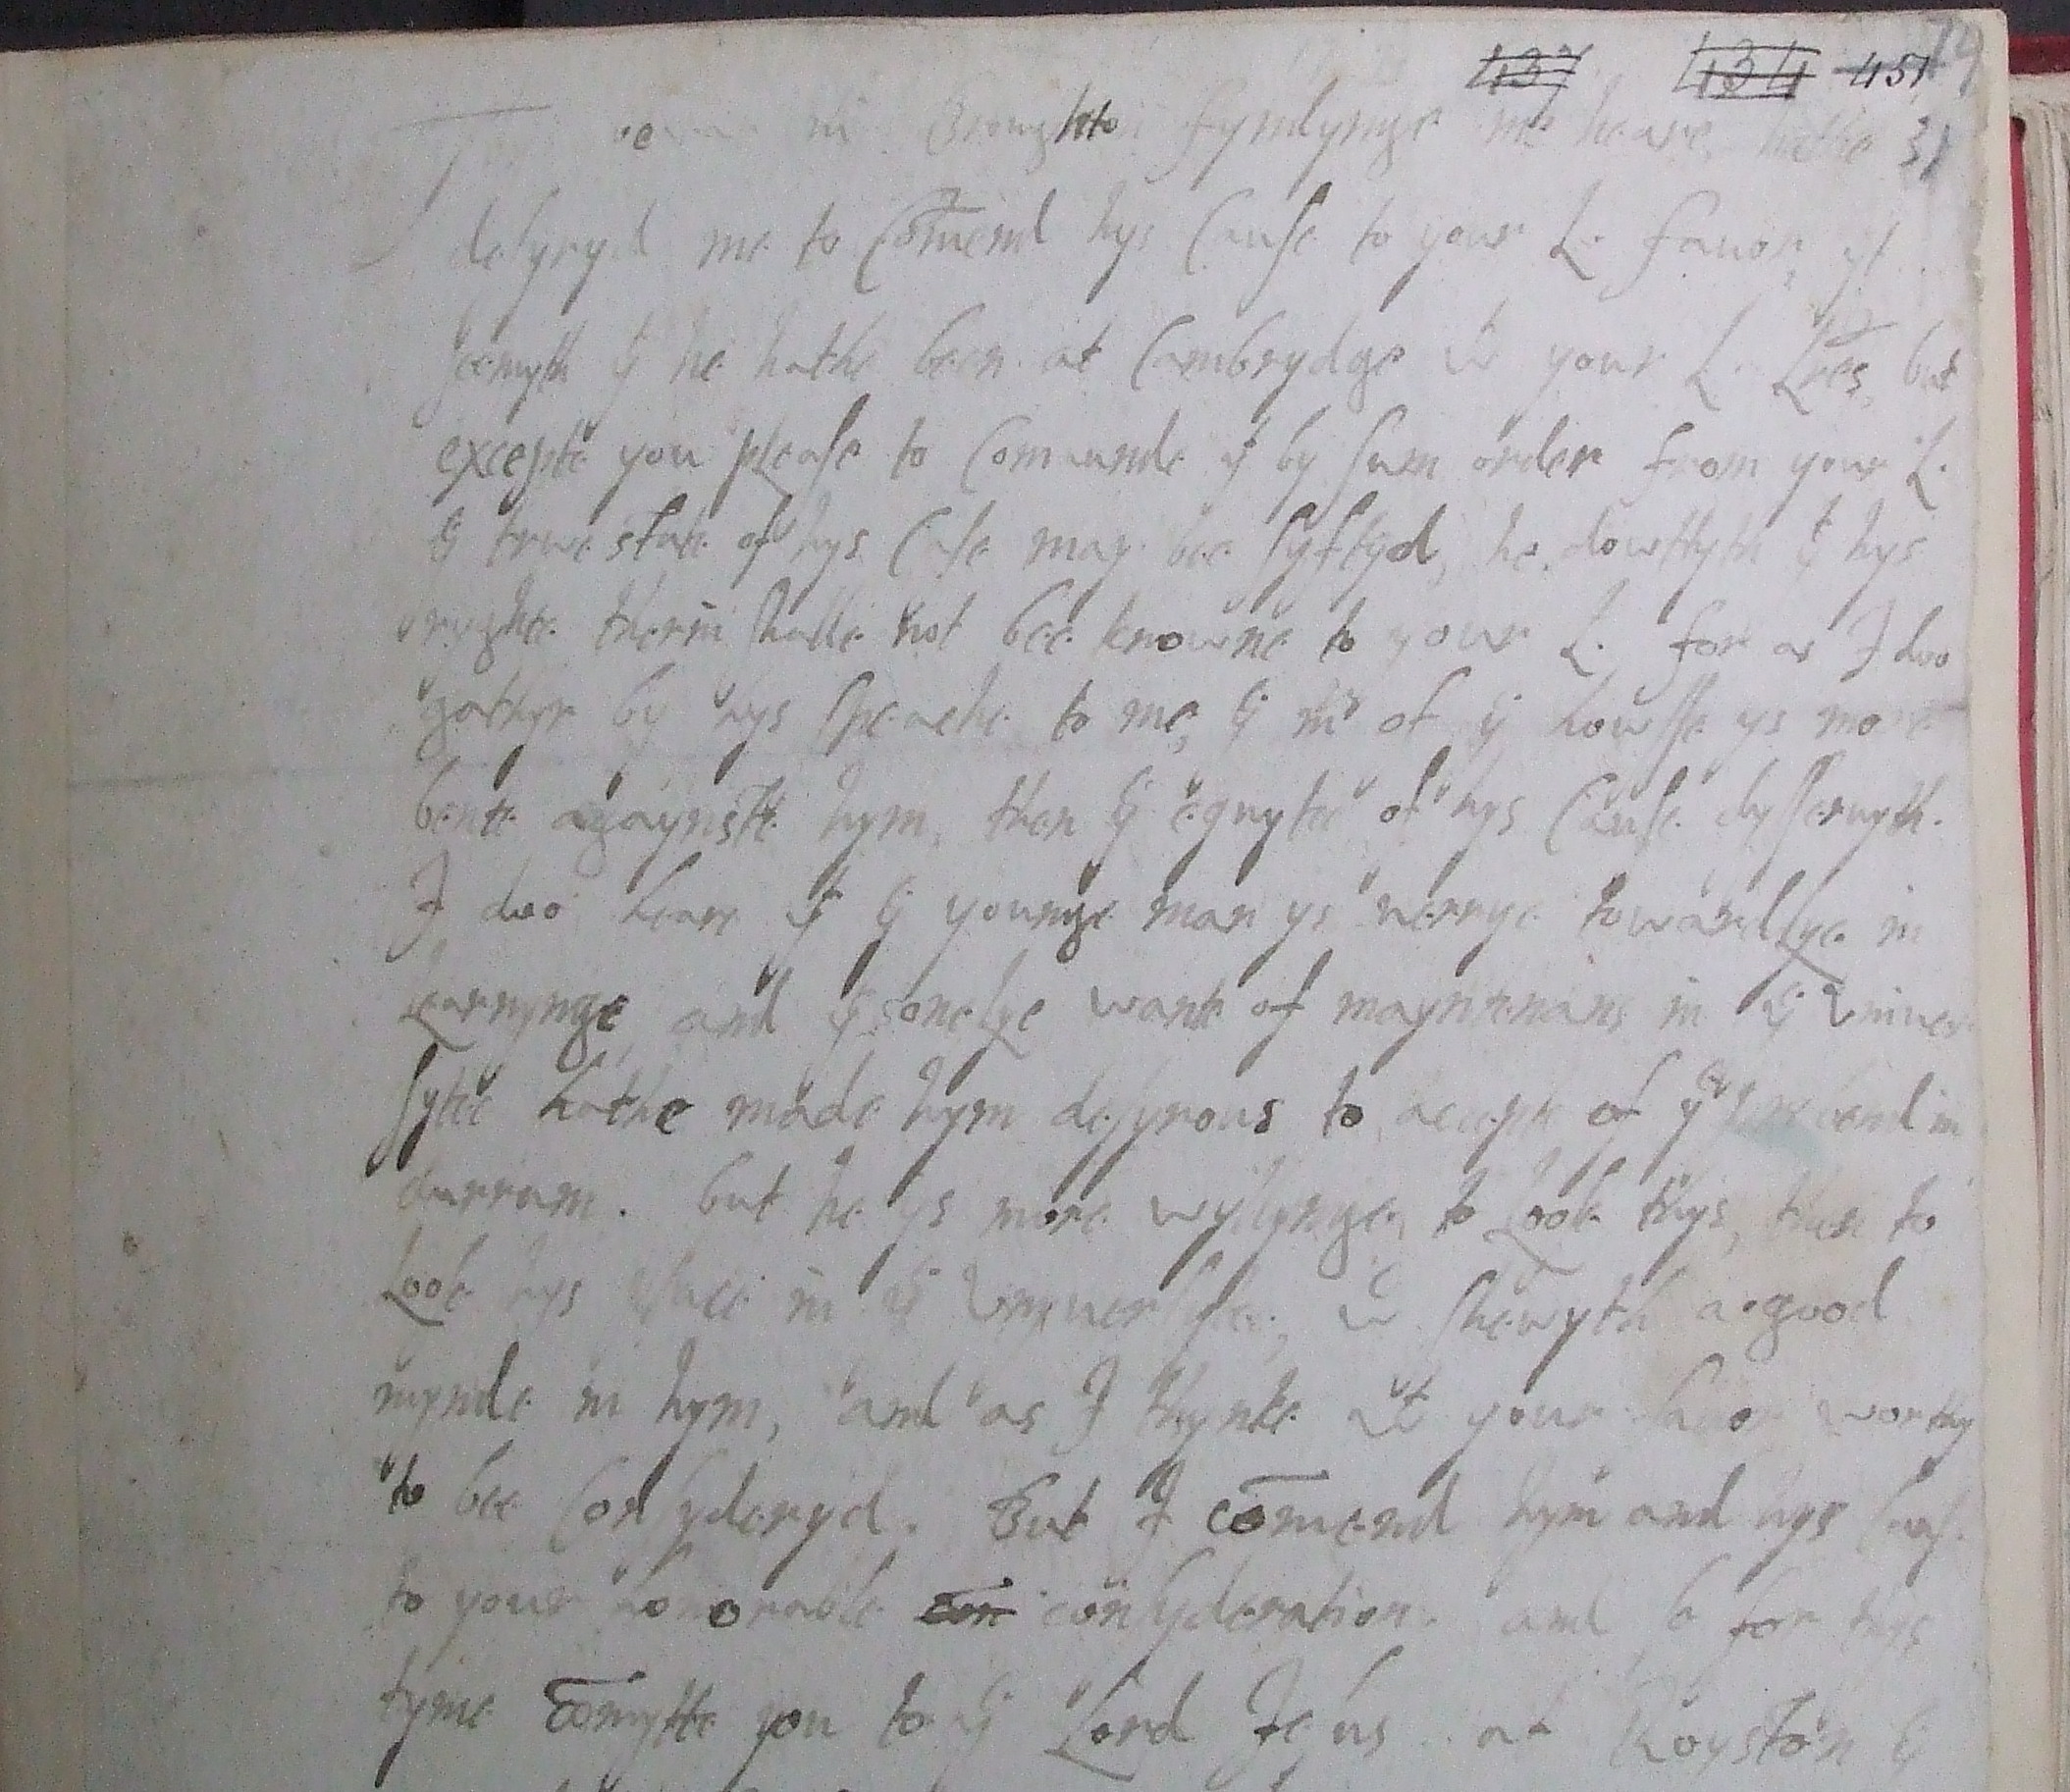 437 434 451
mr Broughton fyndynge me heare, hathe 31
desyryd me to Comend hys Cause to your L. favor, yt
seemyth yt he hathe been at Cambrydge wt your L. Lres, but
excepte you please to Comaunde yt by sum order from your L.
ye true state of hys Case may bee syftyd, he dowttyth yt hys
ryghte therin shalle not bee knowne to your L. for as I doo
gathyr by hys speache to me, ye mr of ye howsse ys more
bente agaynste hym, then ye equytee of hys Cause dysservyth.
I doo heare yt ye younge man ys verrye towardlye in
Learnynge, and yt onelye wante of mayntenans in ye Univer
sytee hathe made hym desyrous to accepte of ye prebend in
durram. but he ys more wyllynge to Loose thys, then to
Loose hys place in ye Unyversytee, wc shewyth a good
mynde in hym, and as I thynke at your honor worthy
to bee Consyderyd. But I comend hym and hys cause
to your honorable con consyderation. and so for thys
tyme Comytte you to ye Lord Jesus. at Royston ye